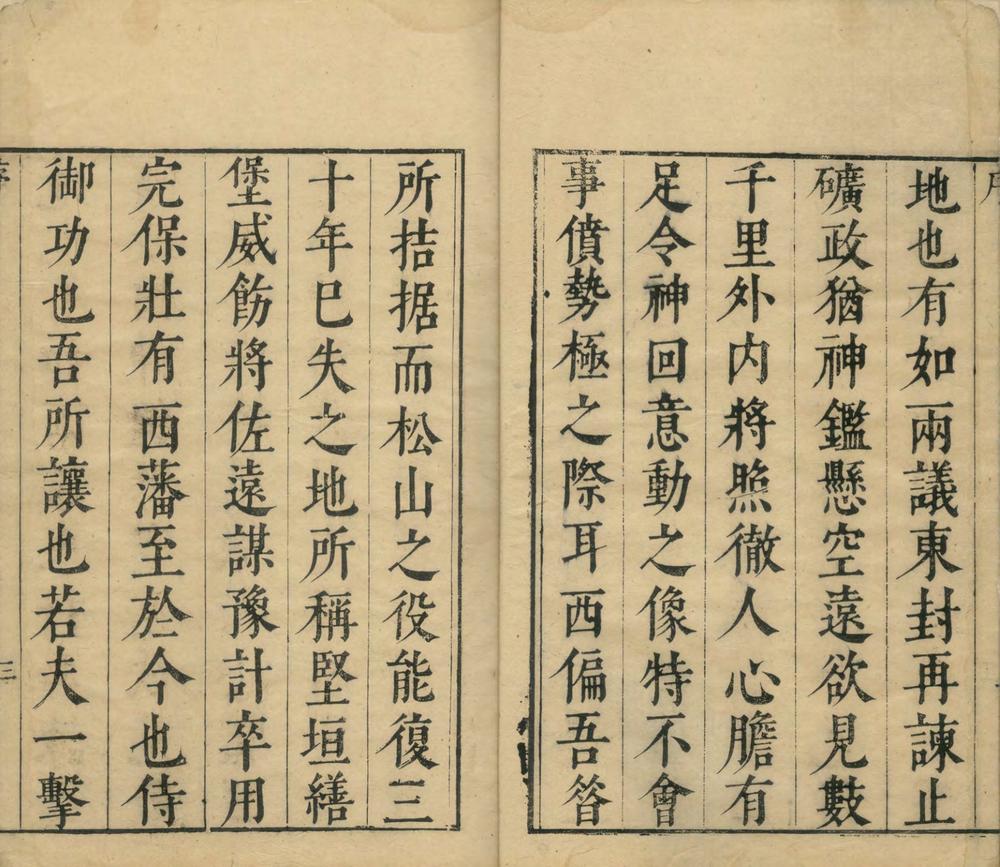 地也有如兩議東封再諫止
礦政猶神鑑懸空遠欲見數
千里外内將照徹人心膽有
足令神回意動之像特不會
事僨勢極之際耳西偏吾昝
所拮据而松山之役能復三
十年已失之地所稱堅垣繕
堡威飭將佐遠謀豫計卒用
完保壯有西藩至於今也侍
御功也吾所讓也若夫一擊
三